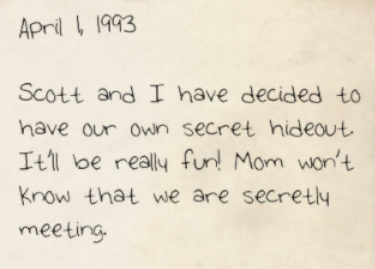 April 1, 1993
Scott and I have decided to
have our own secret hideout.
It'll be really fun! Mom won't
know that we are secretly
meeting.